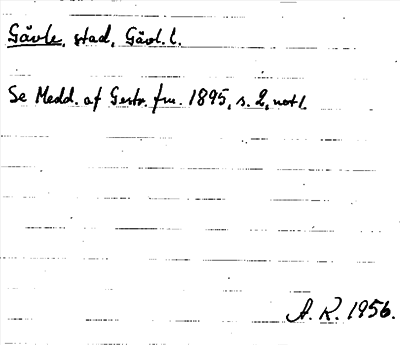 Gävle, stad, Gävl. l.
Se Medd. af Gestr. fm. 1895, s. 2, not 1.
A. K. 1956.